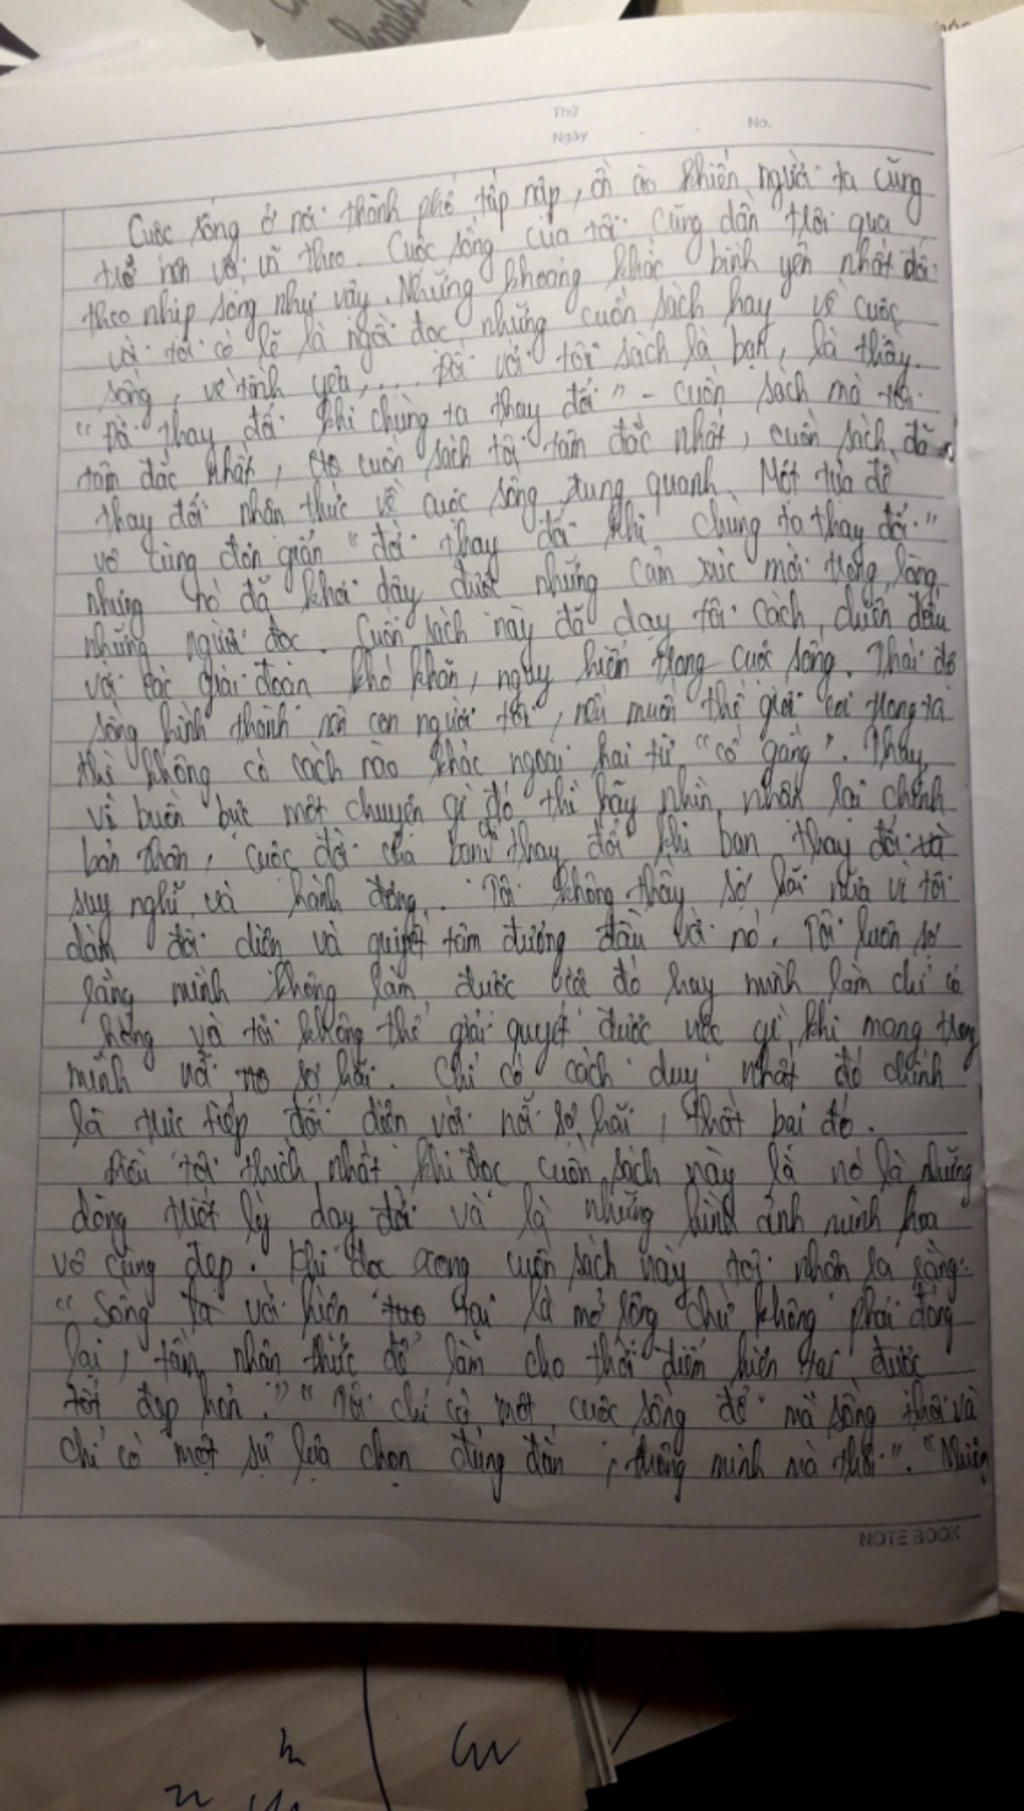 Thứ
Ngày
No.
Cuộc sống ở nơi thành phố tấp nập, ồn ào khiến người ta cũng
trở nên vội vã theo. Cuộc sống của tôi cũng dần trôi qua
theo nhịp sống như vậy. Những khoảng khắc bình yên nhất đối
với tôi có lẽ là ngồi đọc những cuốn sách hay về cuộc
sống, về tình yêu,.... Đối với tôi sách là bạn, là thầy.
"Đời thay đổi khi chúng ta thay đổi" - cuốn sách mà tôi
tâm đắc nhất, cuốn sách tôi tâm đắc nhất, cuốn sách đã
thay đổi nhận thức về cuộc sống xung quanh. Một tựa đề
vô cùng đơn giản "đời thay đổi khi chúng ta thay đổi"
nhưng nó đã khơi dậy được những cảm xúc mới trong lòng
những người đọc. Cuốn sách này đã dạy tôi cách đương đầu
với các giai đoạn khó khăn, nguy hiểm trong cuộc sống. Thái độ
sống hình thành nên con người tôi, nếu muốn thế giới coi trọng ta
thì không có cách nào khác ngoài hai từ "cố gắng". Thay
vì buồn bực một chuyện gì đó thì hãy nhìn nhận lại chính
bản thân, cuộc đời của bạn chỉ thay đổi khi bạn thay đổi
suy nghĩ và hành động. Tôi không thấy sợ hãi nữa vì tôi
dám đối diện và quyết tâm đương đầu với nó. Tôi luôn sợ
rằng mình không làm được việc đó hay mình làm chỉ có
hỏng và tôi không thể giải quyết được việc gì khi mang trong
mình nỗi sợ hãi. Chỉ có cách duy nhất đó chính
là trực tiếp đối diện với nỗi sợ hãi, thất bại đó.
Điều tôi thích nhất khi đọc cuốn sách này là nó là những
dòng triết lý day dứt và là những hình ảnh minh họa
vô cùng đẹp. Khi đọc xong cuốn sách này tôi nhận ra rằng:
"Sống với hiện tại là mở lòng chứ không phải đóng
lại, tâm nhận thức để làm cho thời điểm hiện tại được
tốt đẹp hơn." "Tôi chỉ có một cuộc sống để mà sống thôi và
chỉ có một sự lựa chọn đúng đắn, thông minh mà thôi". "Nhiên
NOTE BOOK